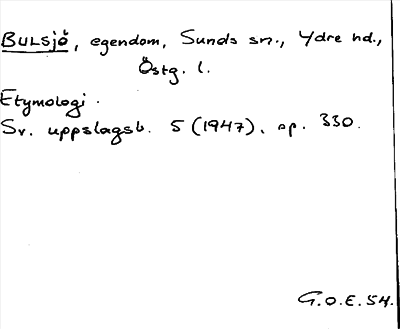 BULSJÖ, egendom, Sunds sn., Ydre hd.,
Östg. l.
Etymologi.
Sv. uppslagsb. 5 (1947), sp. 330.
G.O.E. 54.